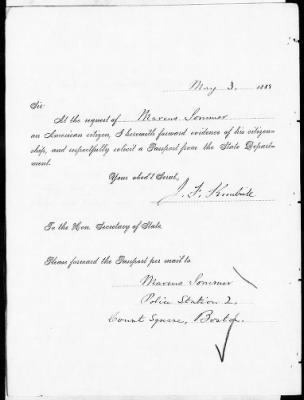 May 3, 1885
Sir
At the request of Marcus Sommer
an American citizen, I herewith forward evidence of his citizen-
ship, and respectfully solicit a Passport from the State Depart-
ment.
Your obed't Servt,
J. F. Kimball
To the Hon. Secretary of State
Please forward the Passport per mail to
Marcus Sommer
Police Station 2,
Court Square, Boston.